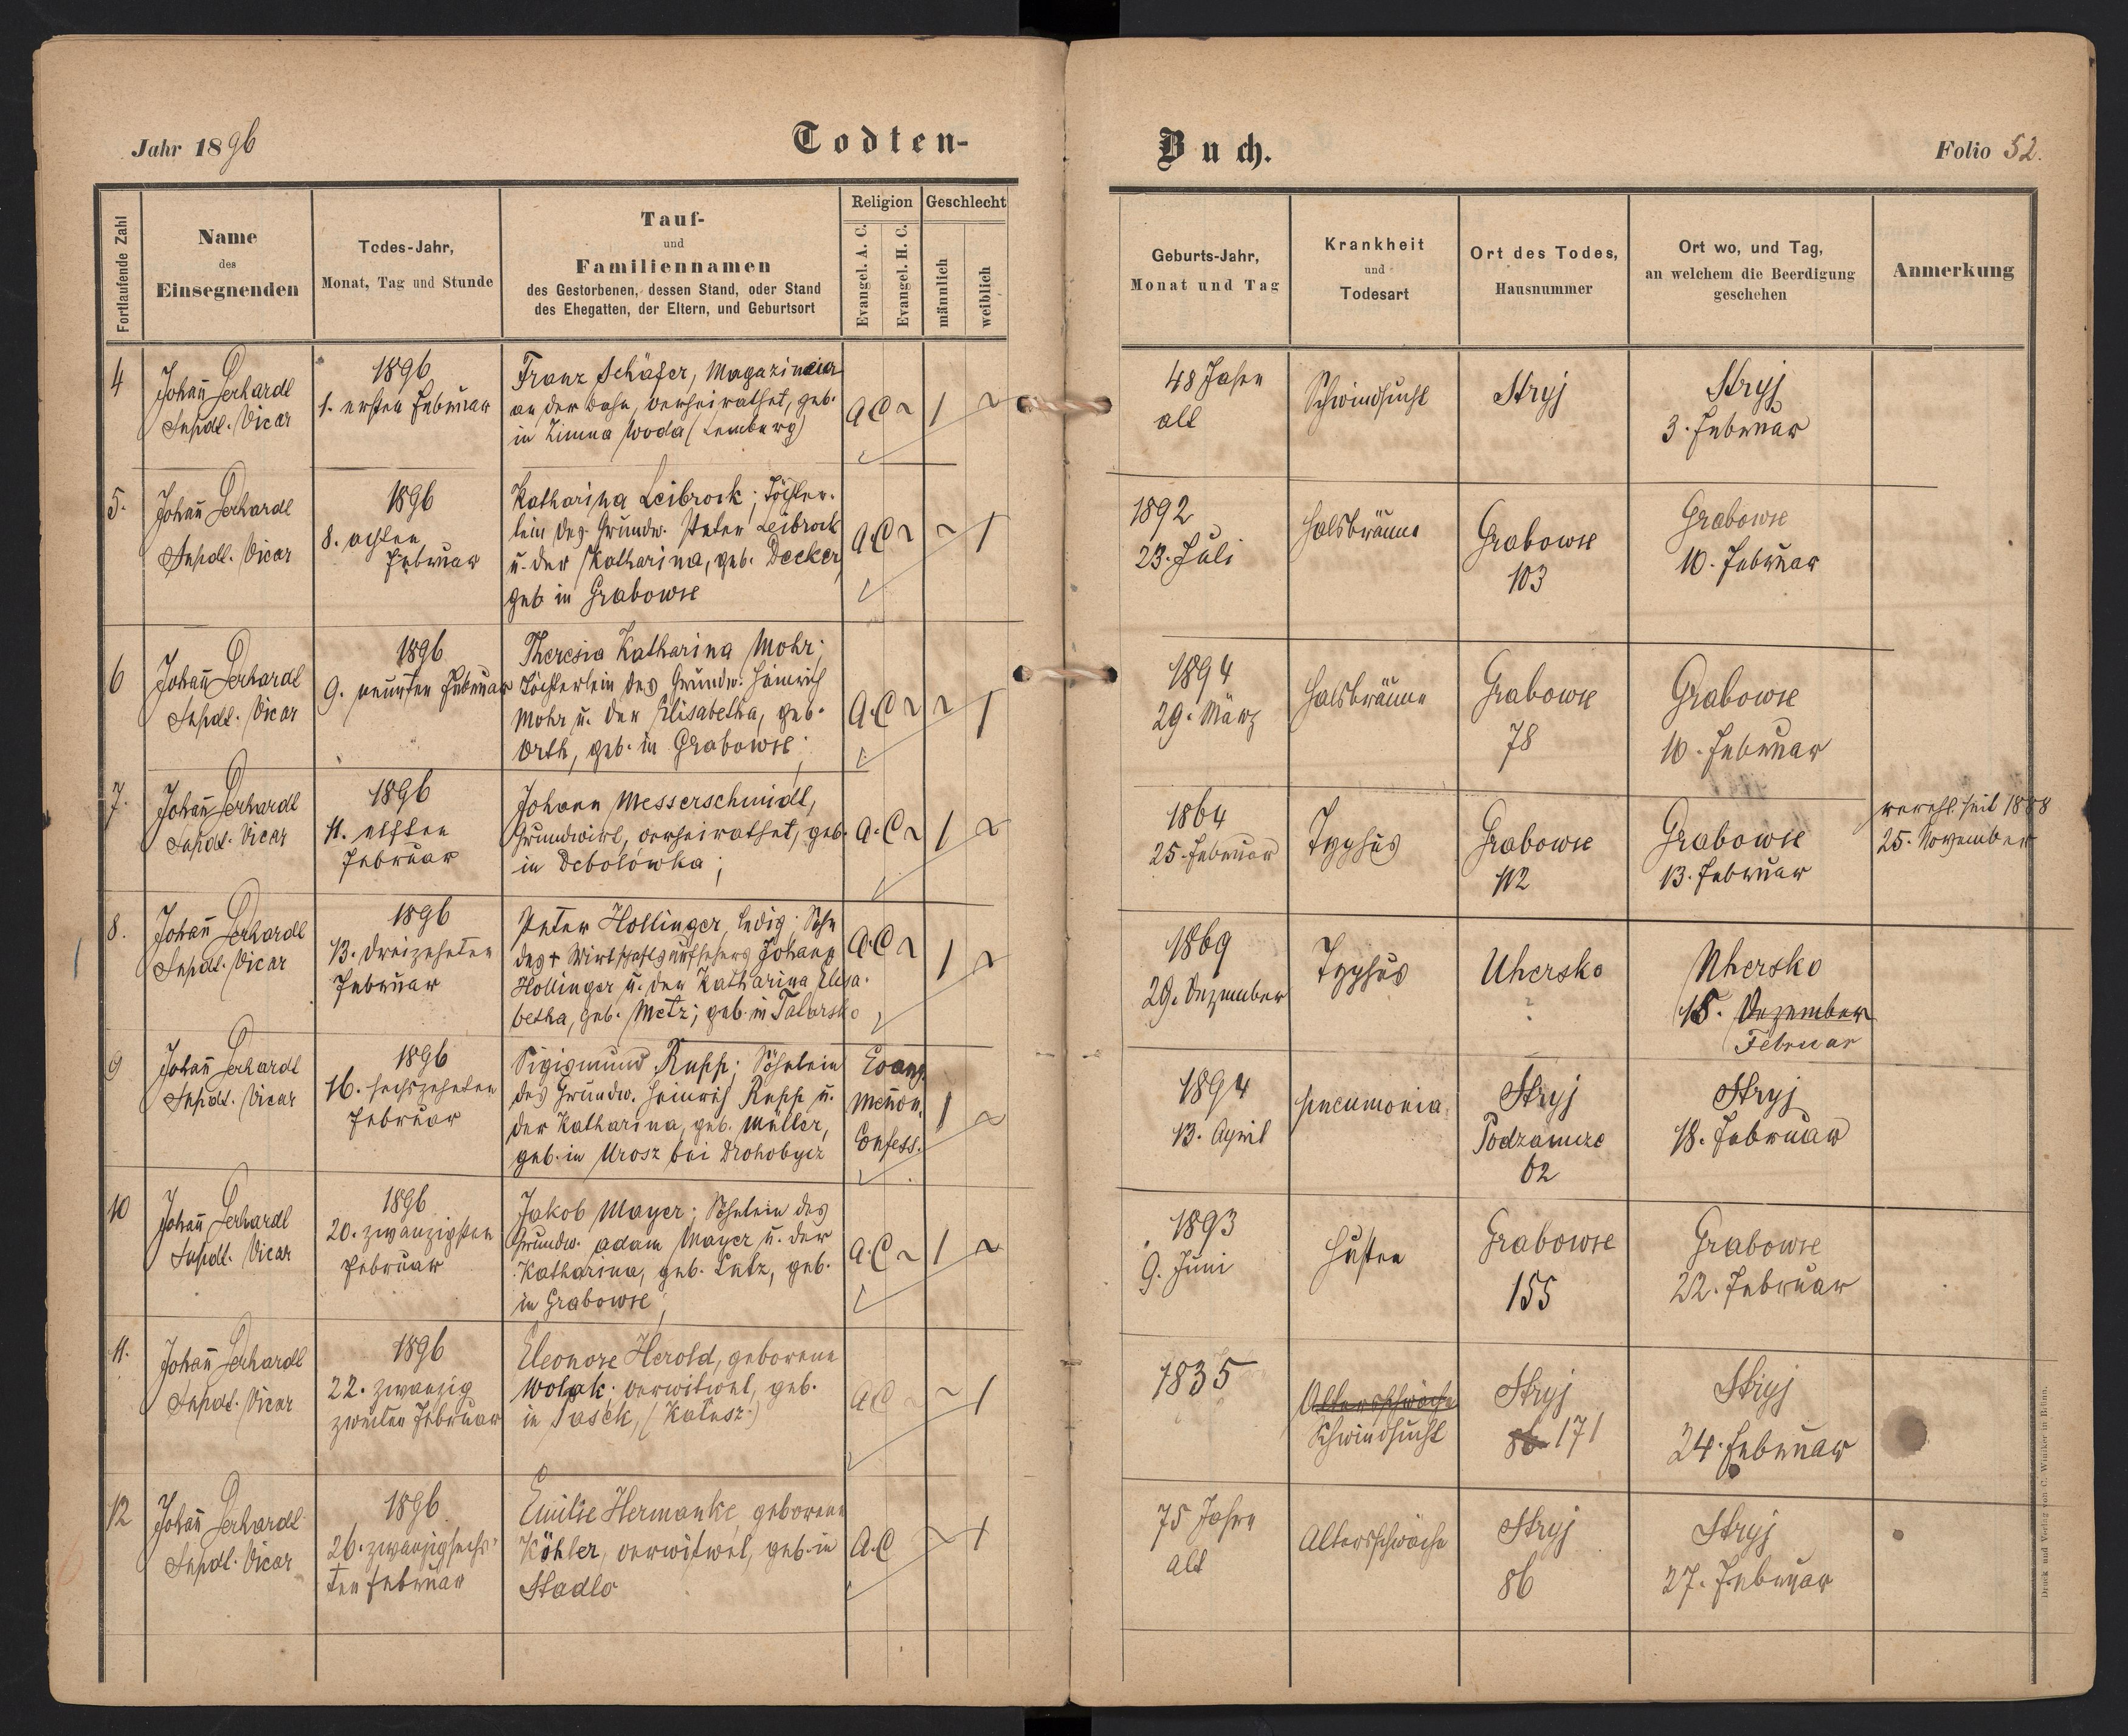 Jahr 1896
Todten-
Buch.
Folio 52.
Fortlaufende Zahl
Name
des
Einsegnenden
Todes-Jahr,
Monat, Tag und Stunde
Tauf-
und
Familiennamen
des Gestorbenen, dessen Stand, oder Stand
des Ehegatten, der Eltern, und Geburtsort
Religion
Evangel. A. C.
Evangel. H. C.
Geschlecht
männlich
weiblich
Geburts-Jahr,
Monat und Tag
Krankheit
und
Todesart
Ort des Todes,
Hausnummer
Ort wo, und Tag,
an welchem die Beerdigung
geschehen
Anmerkung
4
Johañ Gerhardt
Supdt. Vicar
1896
1. ersten Februar
Franz Schäfer, Magazineur
an der Bahn, verheirathet, geb.
in Zimna Woda (Lemberg)
A.C ~
1
~
48 Jahre
alt
Schwindsucht
Stryj
Stryj
3. Februar
5.
Johañ Gerhardt
Supdt. Vicar
1896
8. achten
Februar
Katharina Leibrock; Töchter-
lein des Grundw. Peter Leibrock
u. der Katharina, geb. Decker,
geb in Grabowce
A.C ~
~
1
1892
23. Juli
Halsbräune
Grabowce
103
Grabowce
10. Februar
6
Johañ Gerhardt
Supdt. Vicar
1896
9. neunten Februar
Theresia Katharina Mohr;
Töchterlein des Grundw. Heinrich
Mohr u. der Elisabetha, geb.
Orth, geb. in Grabowce;
A.C ~
~
1
1894
29. März
Halsbräune
Grabowce
78
Grabowce
10. Februar
7.
Johañ Gerhardt
Supdt. Vicar
1896
11. elften
Februar
Johann Messerschmidt,
Grundwirt, verheirathet, geb.
in Debolowka;
A.C ~
1
~
1864
25. Februar
Typhus
Grabowce
112
Grabowce
13. Februar
verehl. seit 1888
25. November
8.
Johañ Gerhardt
Supdt. Vicar
1896
13. dreizehnten
Februar
Peter Hollinger, ledig; Sohn
des + Wirtschaftsaufsehers Johann
Hollinger u. der Katharina Elisa-
betha, geb. Metz; geb. in Tatarsko
A.C ~
1
~
1869
29. Dezember
Typhus
Uhersko
?
Uhersko
15. Dezember
Februar
9
Johañ Gerhardt
Supdt. Vicar
1896
16. sechszehnten
Februar
Sigismund Rupp; Söhnlein
des Grundw. Heinrich Rupp u.
der Katharina, geb. Müller,
geb. in Urosz bei Drohobycz
Evang.
Meñon.
Confess.
1
~
1894
13. April
pneumonia
Stryj
Podzamcze
62
Stryj
18. Februar
10
Johañ Gerhardt
Supdt. Vicar
1896
20. zwanzigsten
Februar
Jakob Mayer; Söhnlein des
Grundw. Adam Mayer u. der
Katharina, geb. Lutz, geb.
in Grabowce;
A.C ~
1
~
1893
9. Juni
Husten
Grabowce
155
Grabowce
22. Februar
11.
Johañ Gerhardt
Supdt. Vicar
1896
22. zwanzig
zweiten Februar
Eleonore Herold, geborene
Wolak; verwitwet, geb.
in Pasek, (Kałusz)
A.C ~
~
1
1835
Altersschwäche
Schwindsucht
Stryj
86 171
Stryj
24. Februar
12
Johañ Gerhardt
Supdt. Vicar
1896
26. zwanzigsechs-
ten Februar
Emilie Hermanke, geborene
Köhler, verwitwet, geb. in
Stadlo
A.C
~
1
75 Jahre
alt
Altersschwäche
Stryj
86
Stryj
27. Februar
Druck und Verlag von C. Winiker in Brünn.